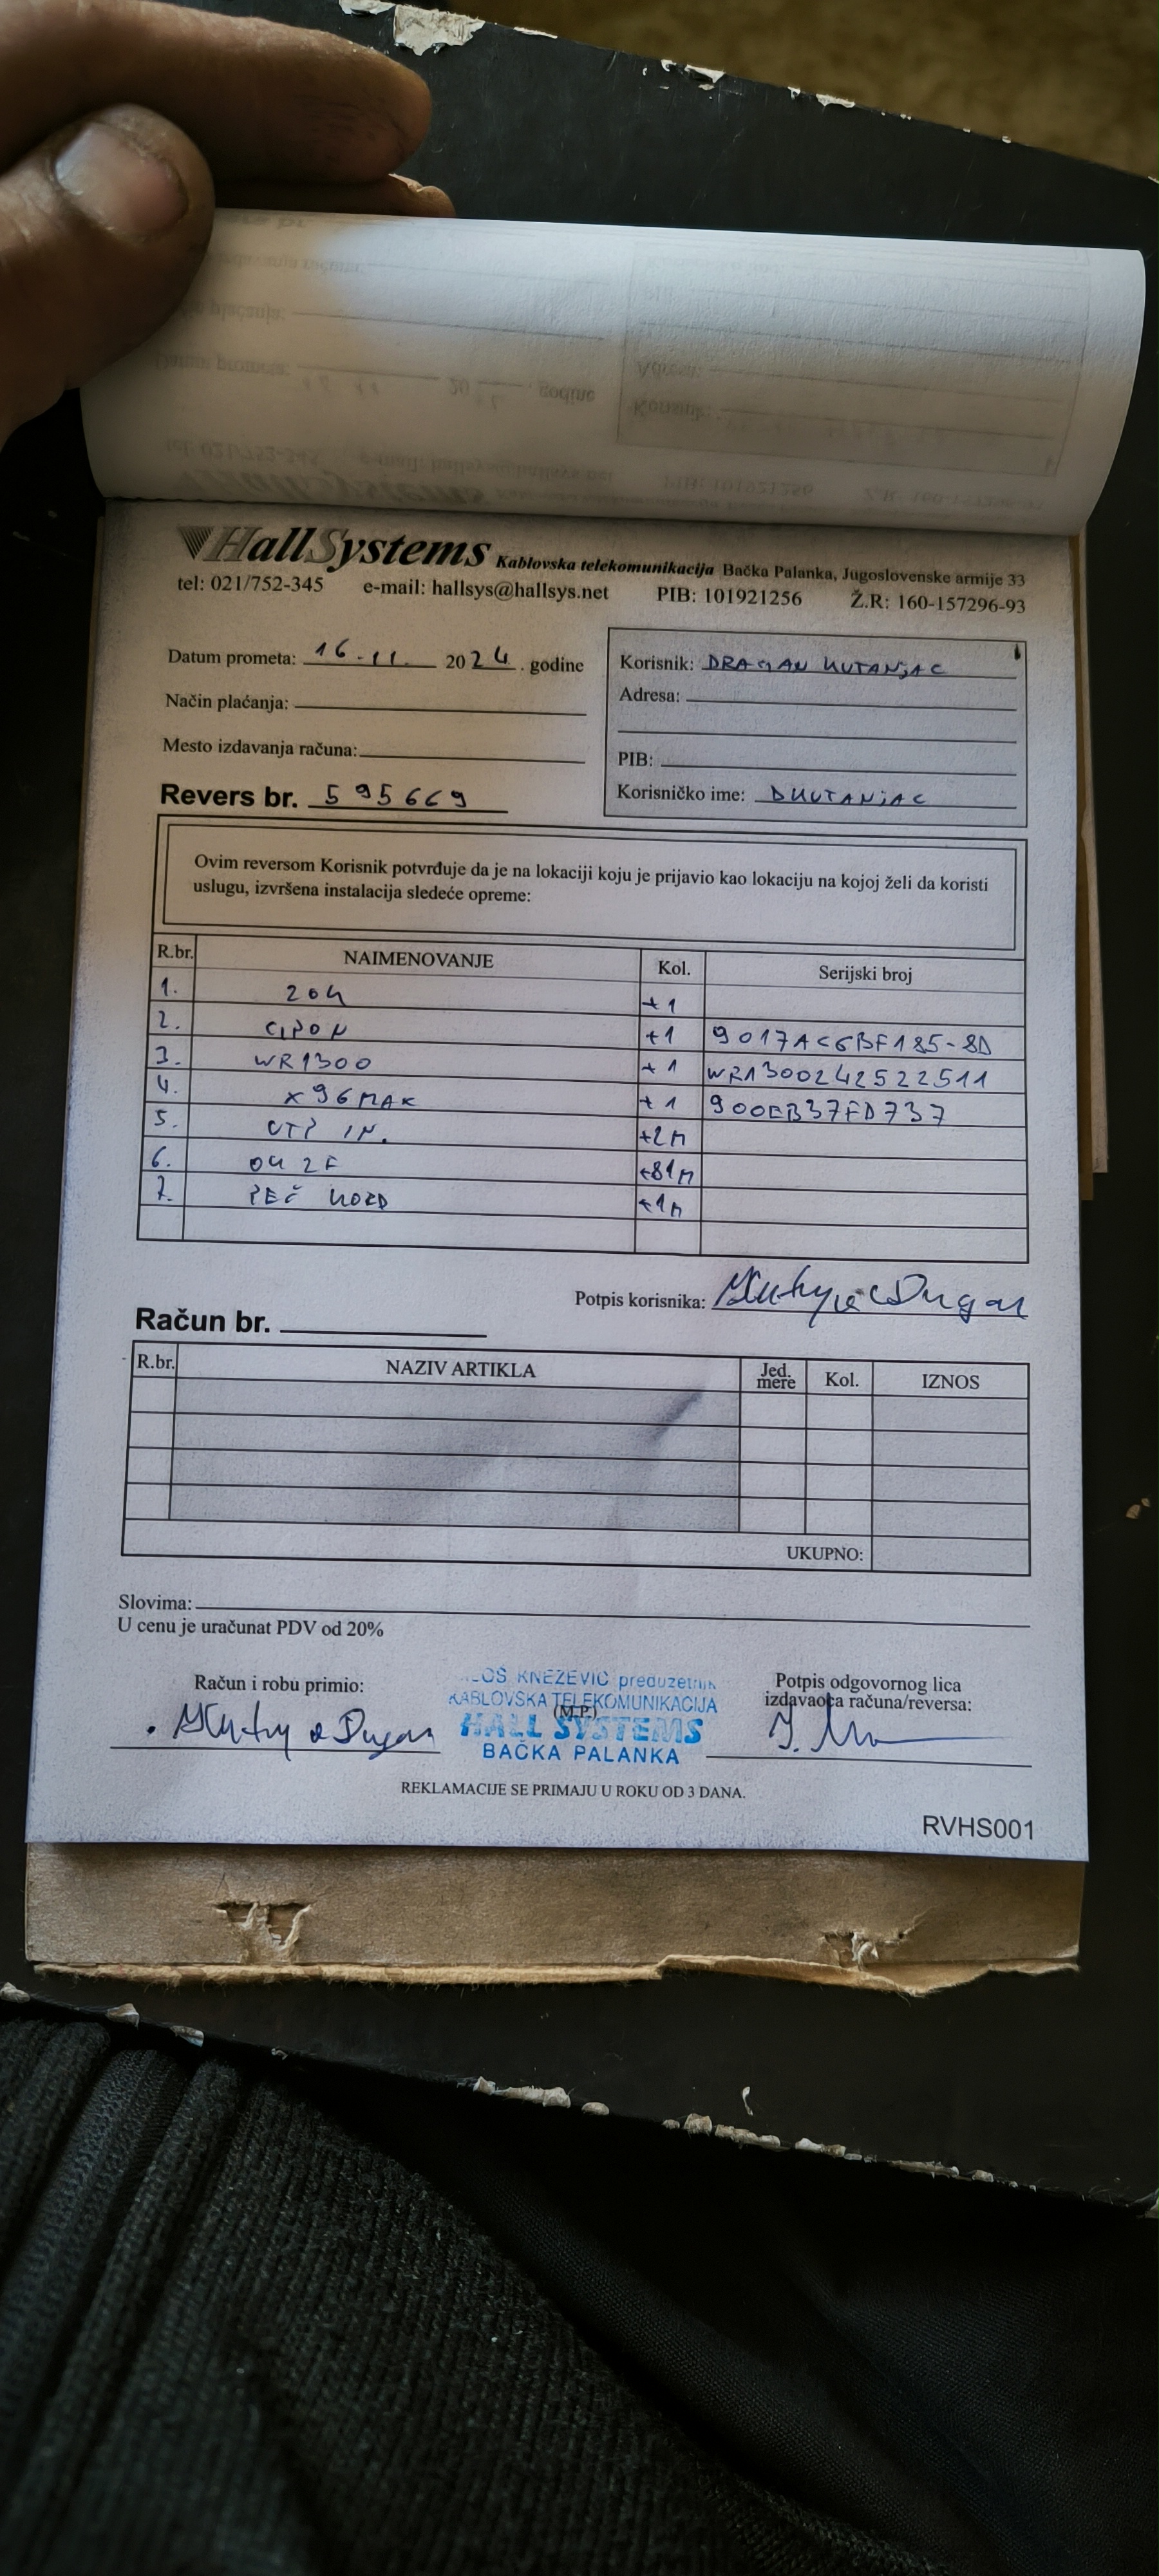 HallSystems Kablovska telekomunikacija Bačka Palanka, Jugoslovenske armije 33
tel: 021/752-345 e-mail: hallsys@hallsys.net PIB: 101921256 Ž.R: 160-157296-93
Datum prometa: 16.11. 2024. godine
Način plaćanja:
Mesto izdavanja računa:
Revers br. 595669
Korisnik: DRAGAN KUTANJAC
Adresa:
PIB:
Korisničko ime: DKUTANJAC
Ovim reversom Korisnik potvrđuje da je na lokaciji koju je prijavio kao lokaciju na kojoj želi da koristi
uslugu, izvršena instalacija sledeće opreme:
R.br. NAIMENOVANJE Kol. Serijski broj
1. ZOK +1
2. GPON +1 9017AC6BF185-8D
3. WR1300 +1 WR1300242522511
4. X96MAK +1 900EB37FD737
5. UTP IN. +2M
6. OK 2F +81M
7. PEČ KORD +1M
Potpis korisnika:
Račun br.
R.br. NAZIV ARTIKLA Jed. mere Kol. IZNOS
UKUPNO:
Slovima:
U cenu je uračunat PDV od 20%
Račun i robu primio:
KNEŽEVIĆ preduzetnik
KABLOVSKA TELEKOMUNIKACIJA
(M.P.)
HALL SYSTEMS
BAČKA PALANKA
Potpis odgovornog lica
izdavaoca računa/reversa:
REKLAMACIJE SE PRIMAJU U ROKU OD 3 DANA.
RVHS001